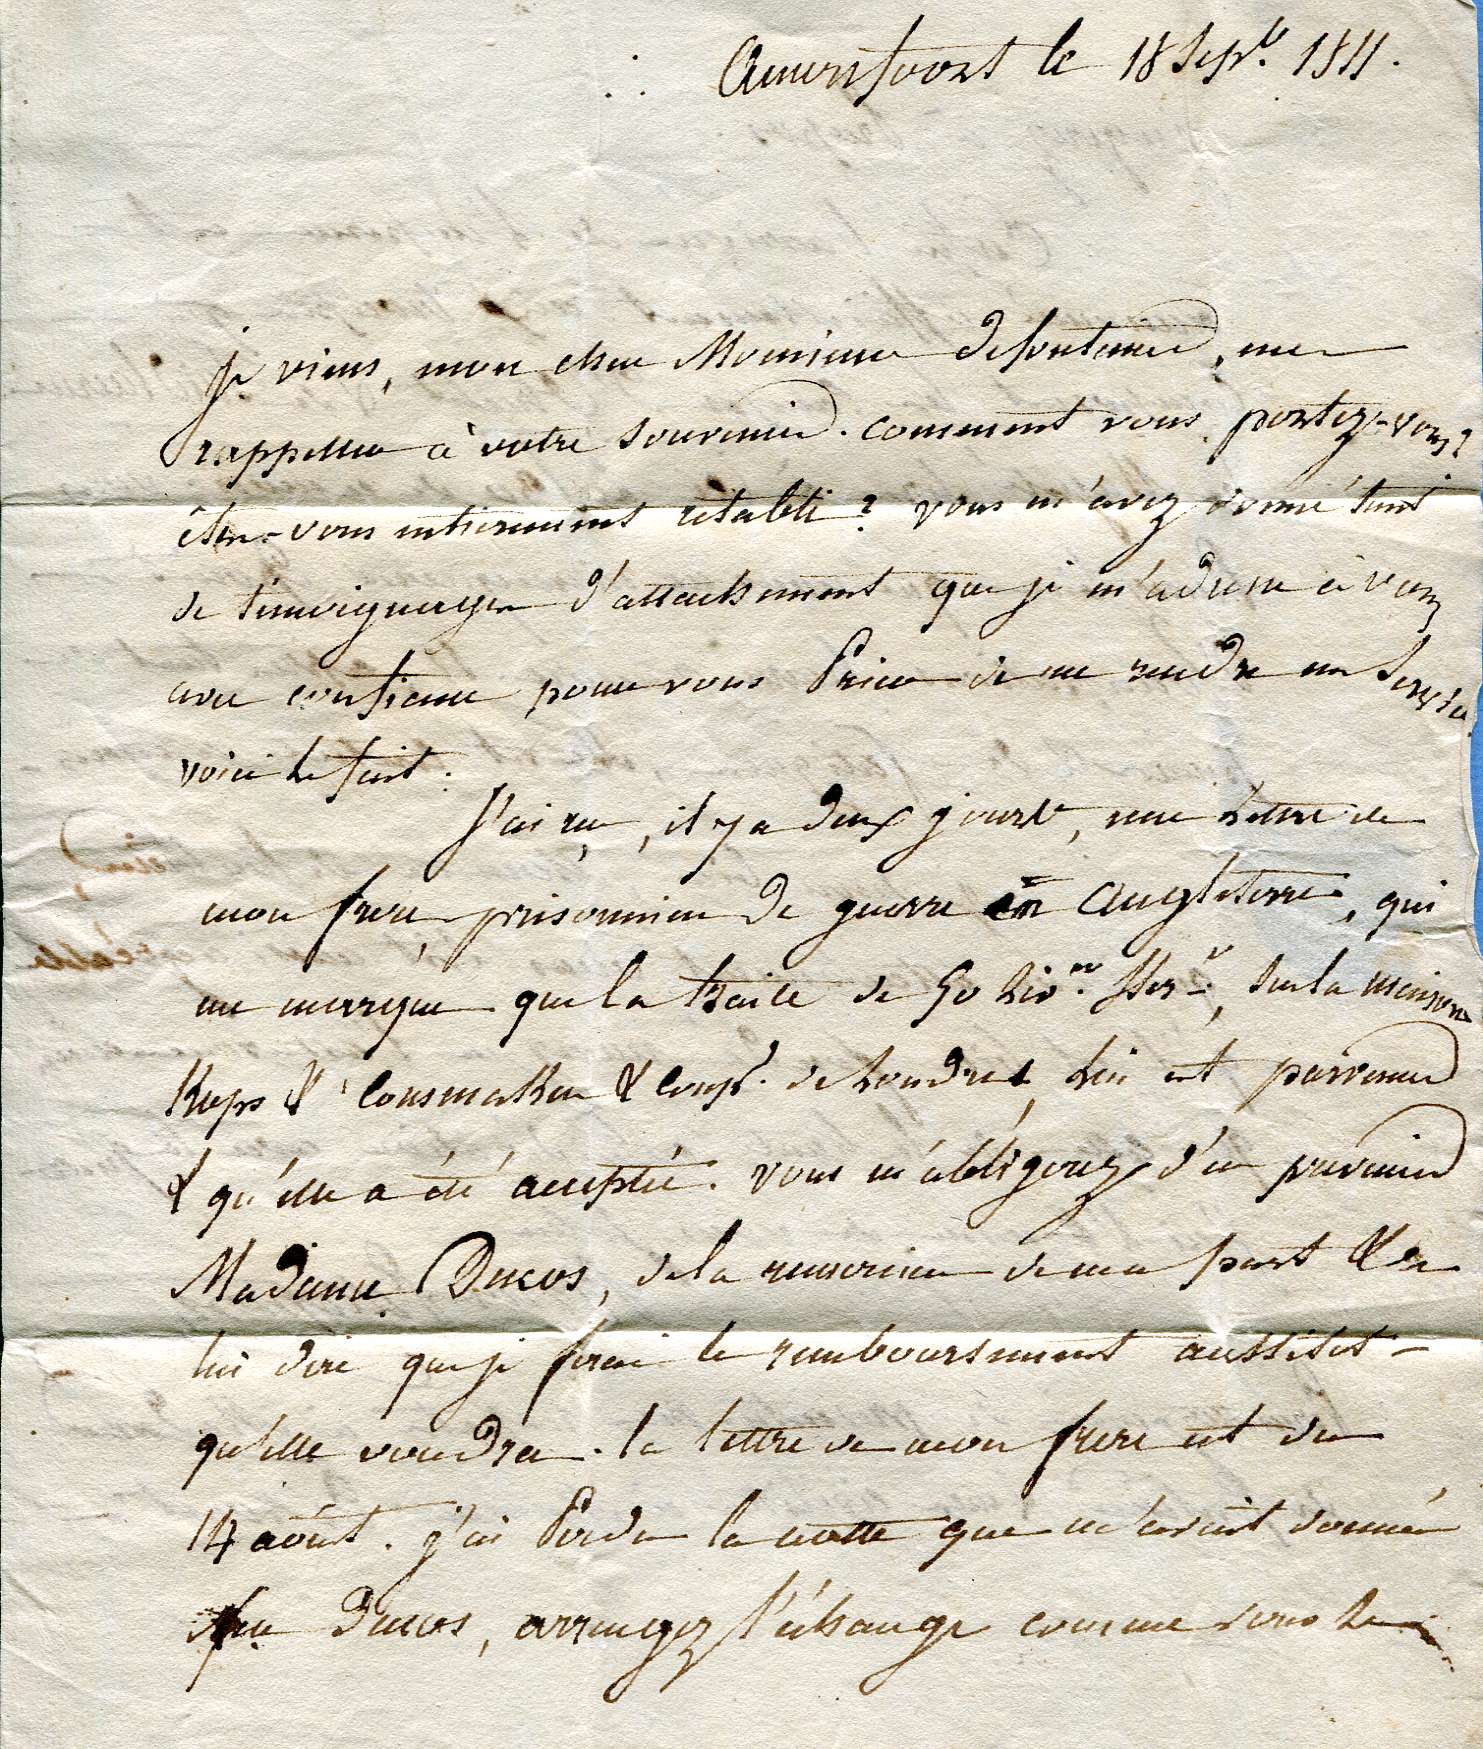 Amersfoort le 18 Sepbr. 1811.
je viens, mon cher Monsieur Defontenai, me
rappeller à votre souvenir. comment vous portez-vous?
êtes-vous entierement rétabli? vous m'avez donné tant
de témoignages d'attachement que je m'adresse à vous
avec confiance pour vous Prier de me rendre un Service
voici le fait.
J'ai reçu, il y a deux jours, une Lettre de
mon frere, prisonnier de guerre en Angleterre, qui
me marque que la traite de 50 Liv.res Ster.g, sur la maison
& Cousmaker & Comp. de Londres, Lui est parvenue
& qu'elle a été acceptée. vous m'obligerez d'en prévenir
Madame Ducos, de la remercier de ma part & de
lui dire que je ferai le remboursement aussitot
qu'elle voudra. la lettre de mon frere est du
14 août. j'ai Perdu la notte que m'avoit donnée
Ducos, arrangez l'échange comme vous le